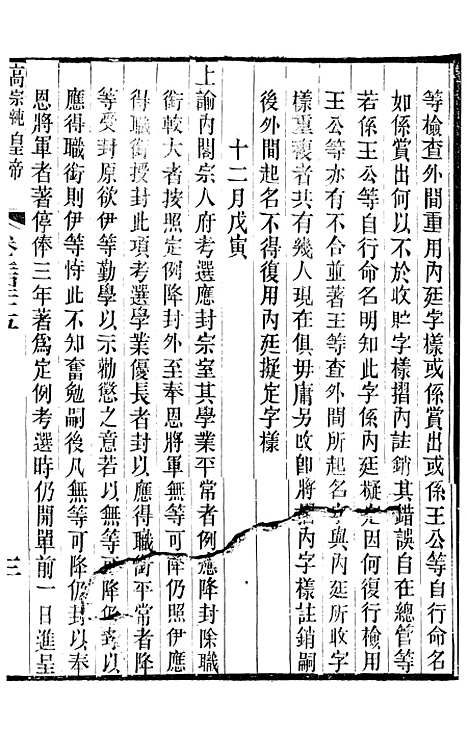 等檢查外間重用內廷字樣或係賞出或係王公等自行命名
如係賞出何以不於收貯字樣摺內註銷其錯誤自在總管等
若係王公等自行命名明知此字係內廷擬定因何復行檢用
王公等亦有不合並著王等查外間所起名字與內廷所收字
樣重複者共有幾人現在俱毋庸另改卽將摺內字樣註銷嗣
後外間起名不得復用內廷擬定字樣
十二月戊寅
上諭內閣宗人府考選應封宗室其學業平常者例應降封除職
銜較大者按照定例降封外至奉恩將軍無等可降仍照伊應
得職銜授封此項考選學業優長者封以應得職銜平常者降
等受封原欲伊等勤學以示勸懲之意若以無等可降仍封以
應得職銜則伊等恃此不知奮勉嗣後凡無等可降仍封以奉
恩將軍者著停俸三年著爲定例考選時仍開單前一日進呈
高宗純皇帝 三